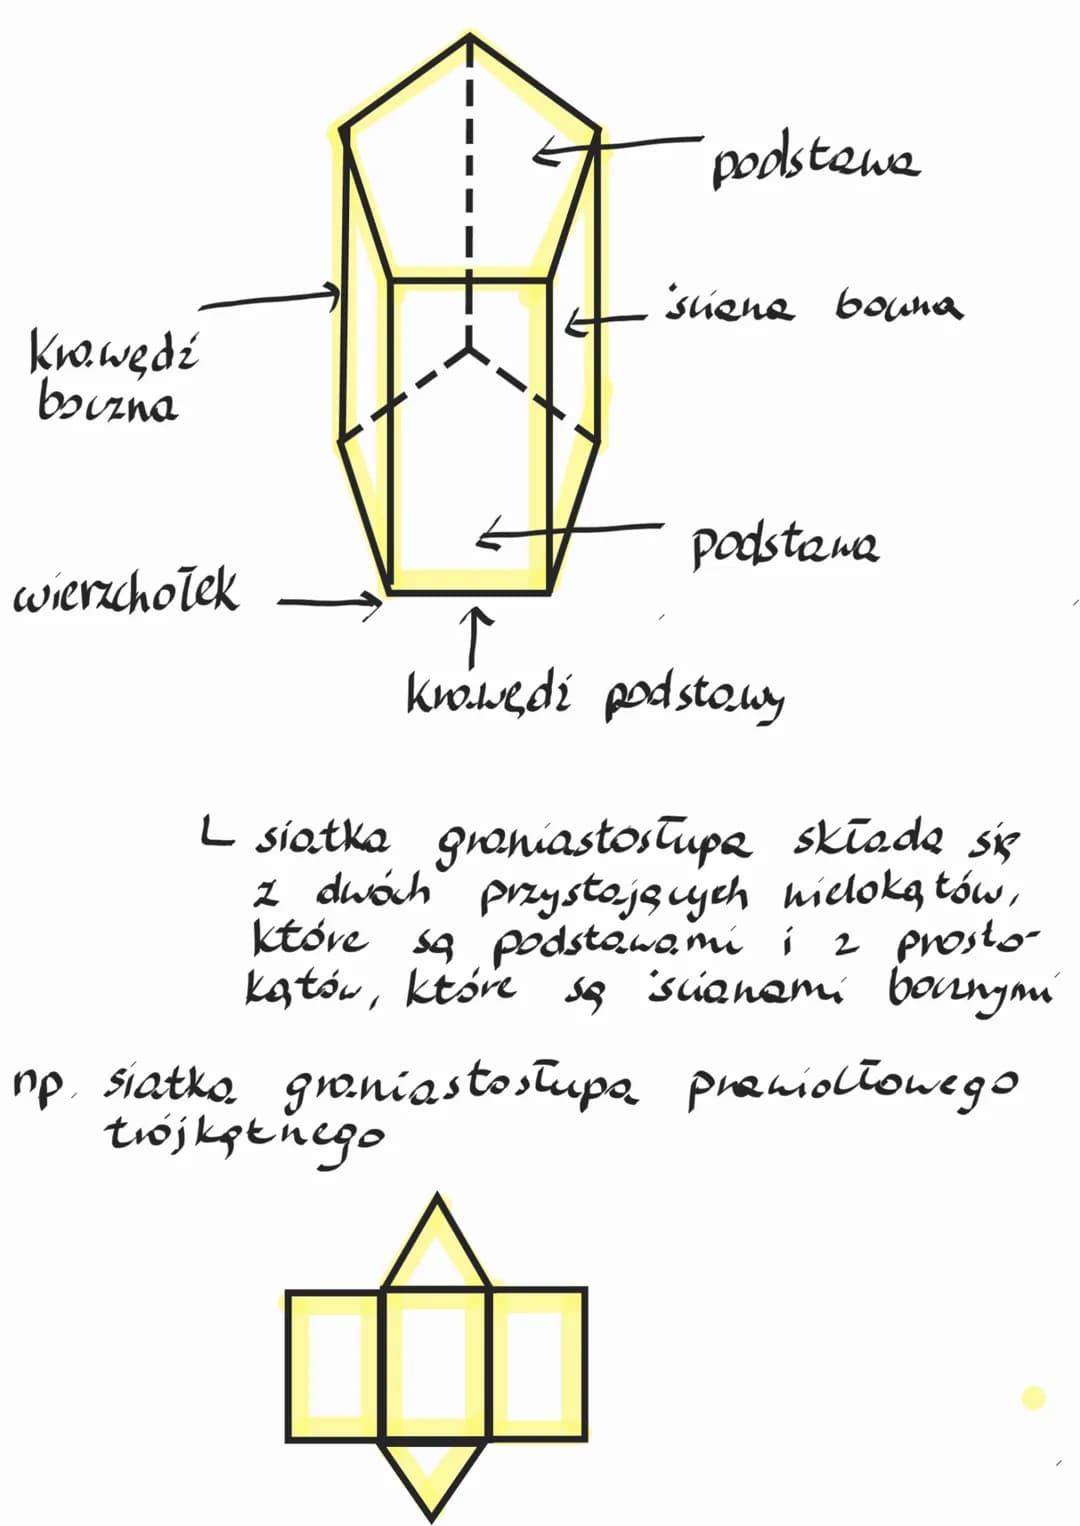 podstawa
ściana boczna
krawędź
boczna
podstawa
wierzchołek
krawędź podstawy
siatka graniastosłupa składa się
z dwóch przystających wielokątów,
które są podstawami i z prosto-
kątów, które są ścianami bocznymi
np. siatka graniastosłupa prawidłowego
trójkątnego